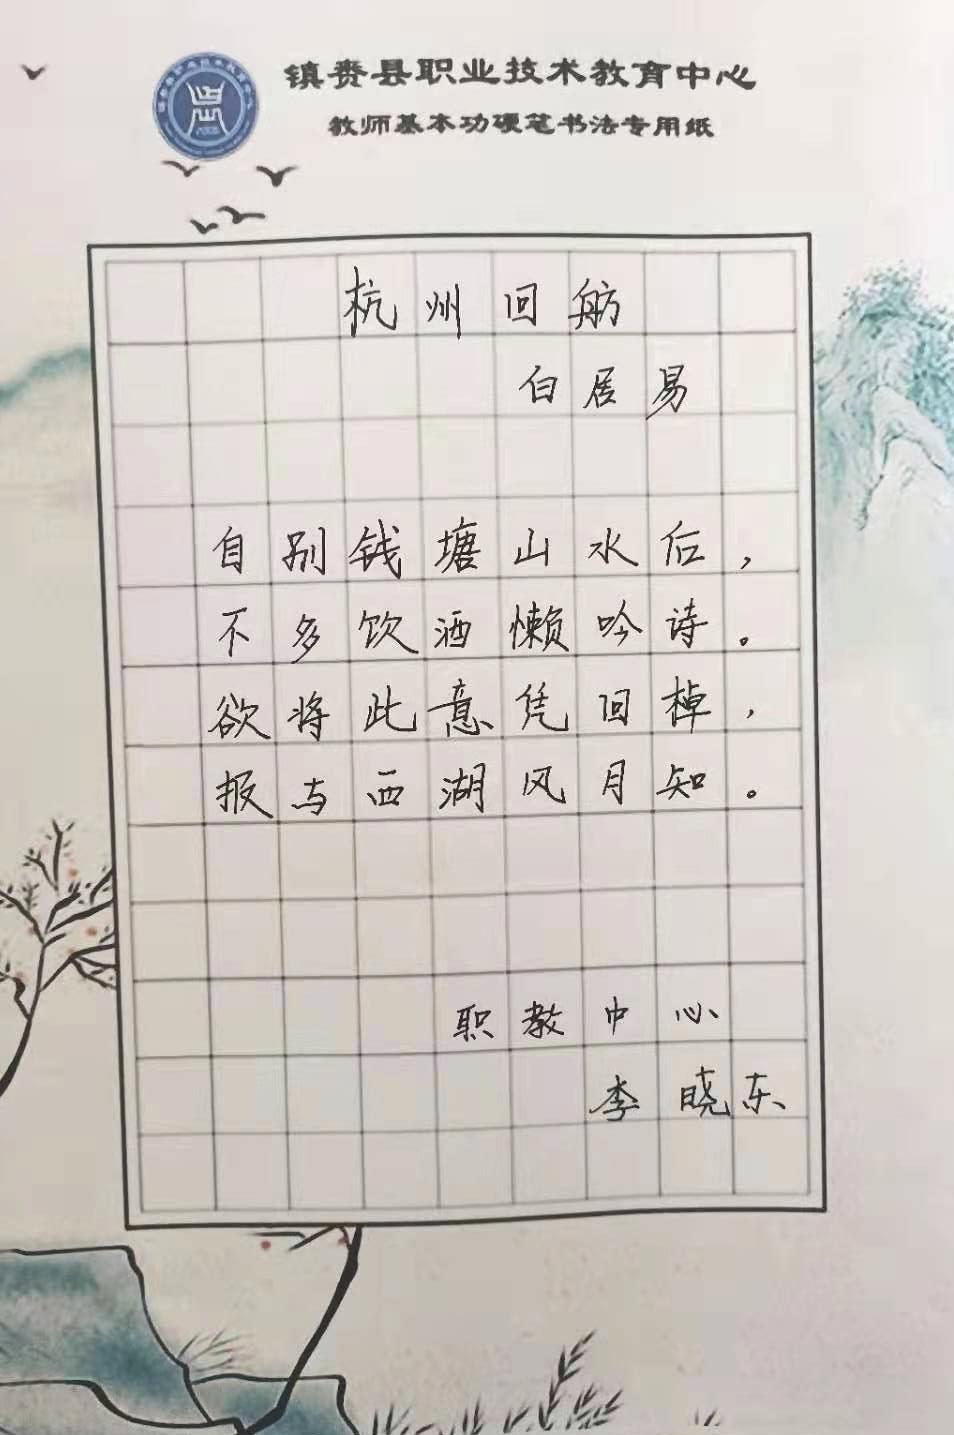 镇赉县职业技术教育中心
教师基本功硬笔书法专用纸
杭州回舫
白居易
自别钱塘山水后，
不多饮酒懒吟诗。
欲将此意凭回棹，
报与西湖风月知。
职教中心
李晓东